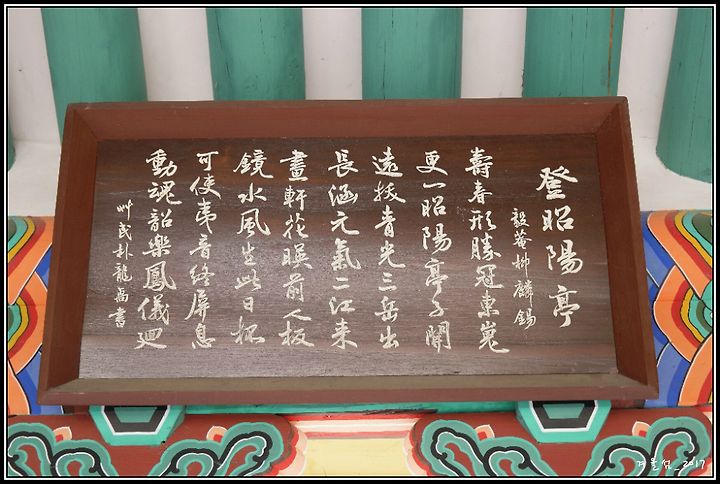 登昭陽亭
毅菴柳麟錫
壽春形勝冠東嵬
更一昭陽亭子開
遠拔青光三岳出
長涵元氣二江来
畫軒花暎前人板
鏡水風生此日杯
可使夷音終屏息
動魂韶樂鳳儀廻
艸民朴龍書
겨울섬_2017